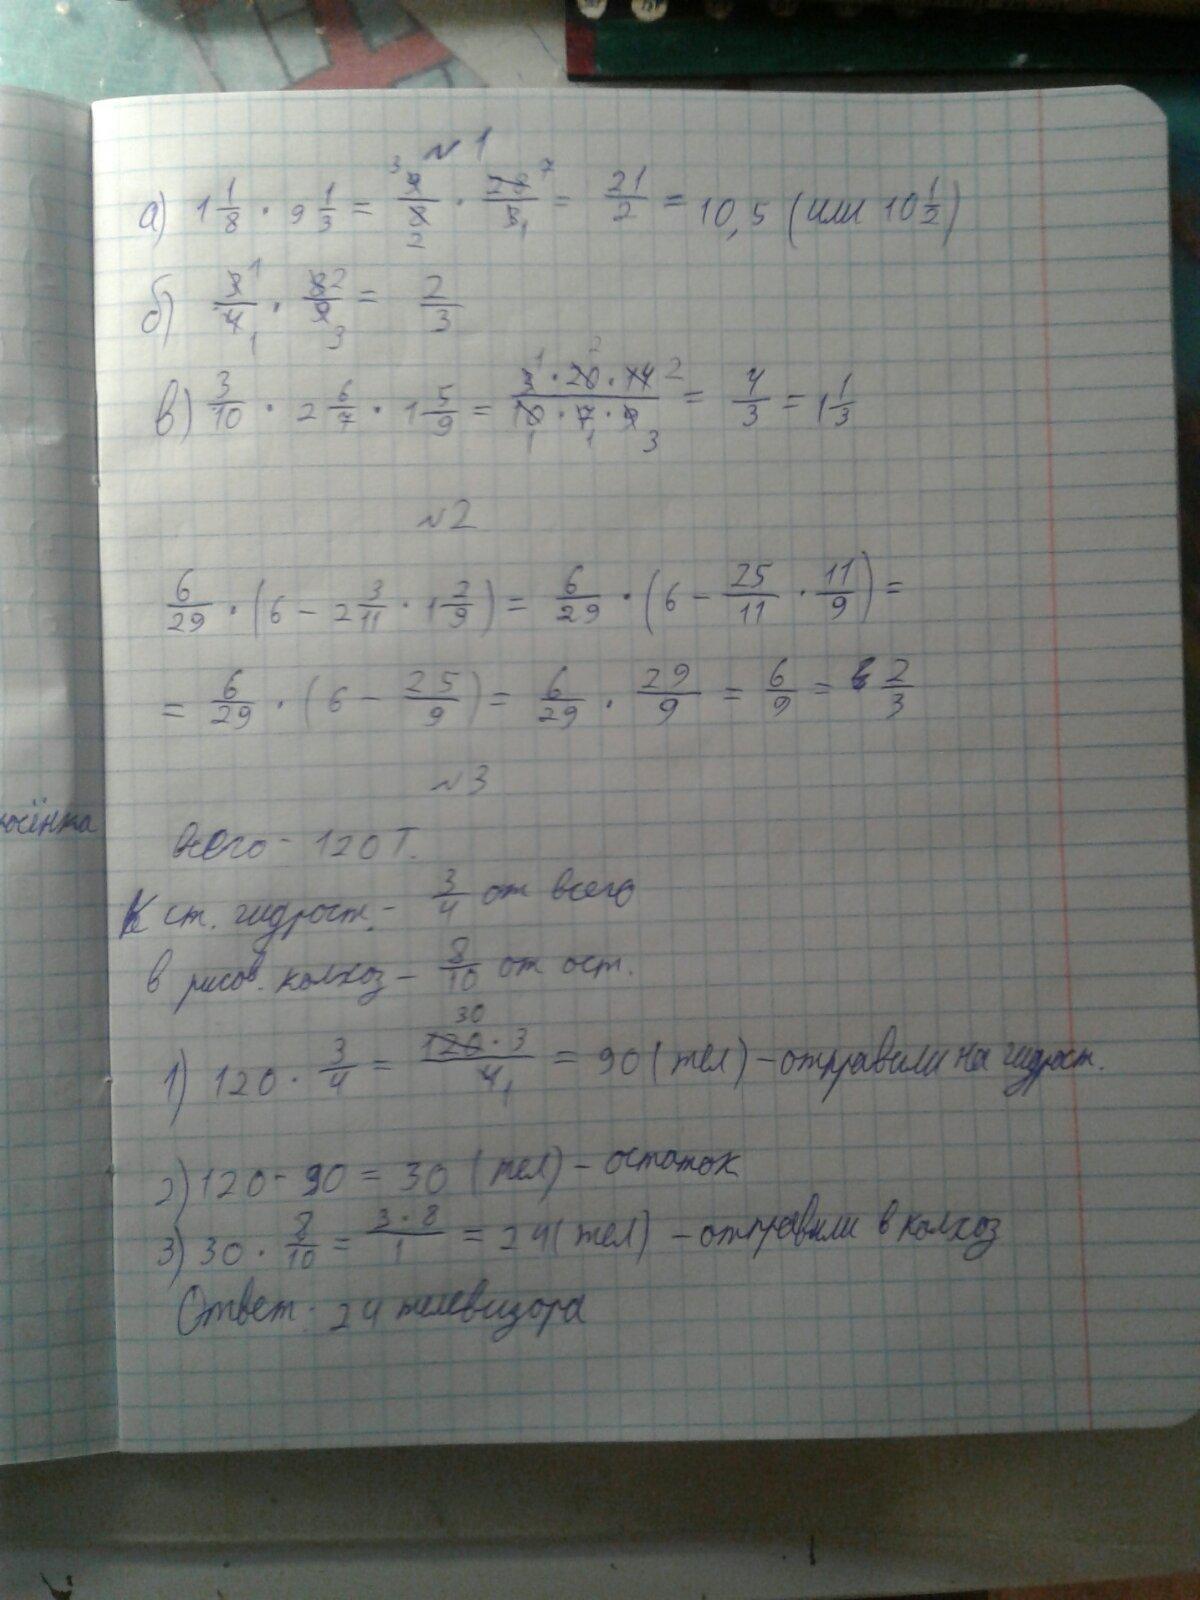 №1
а) 1 1/8 · 9 1/3 = 9/8 · 28/3 = 21/2 = 10,5 (или 10 1/2)
б) 3/4 · 8/9 = 2/3
в) 3/10 · 2 6/7 · 1 5/9 = 3·20·14/10·7·9 = 4/3 = 1 1/3
№2
6/29 · (6 - 2 3/11 · 1 2/9) = 6/29 · (6 - 25/11 · 11/9) =
= 6/29 · (6 - 25/9) = 6/29 · 29/9 = 6/9 = 2/3
№3
Всего - 120 Т.
К ст. гидрост. - 3/4 от всего
в рисов. колхоз - 8/10 от ост.
1) 120 · 3/4 = 120·3/4 = 90 (тел) - отправили на гидрост.
2) 120 - 90 = 30 (тел) - остаток
3) 30 · 8/10 = 3·8/1 = 24 (тел) - отправили в колхоз
Ответ: 24 телевизора